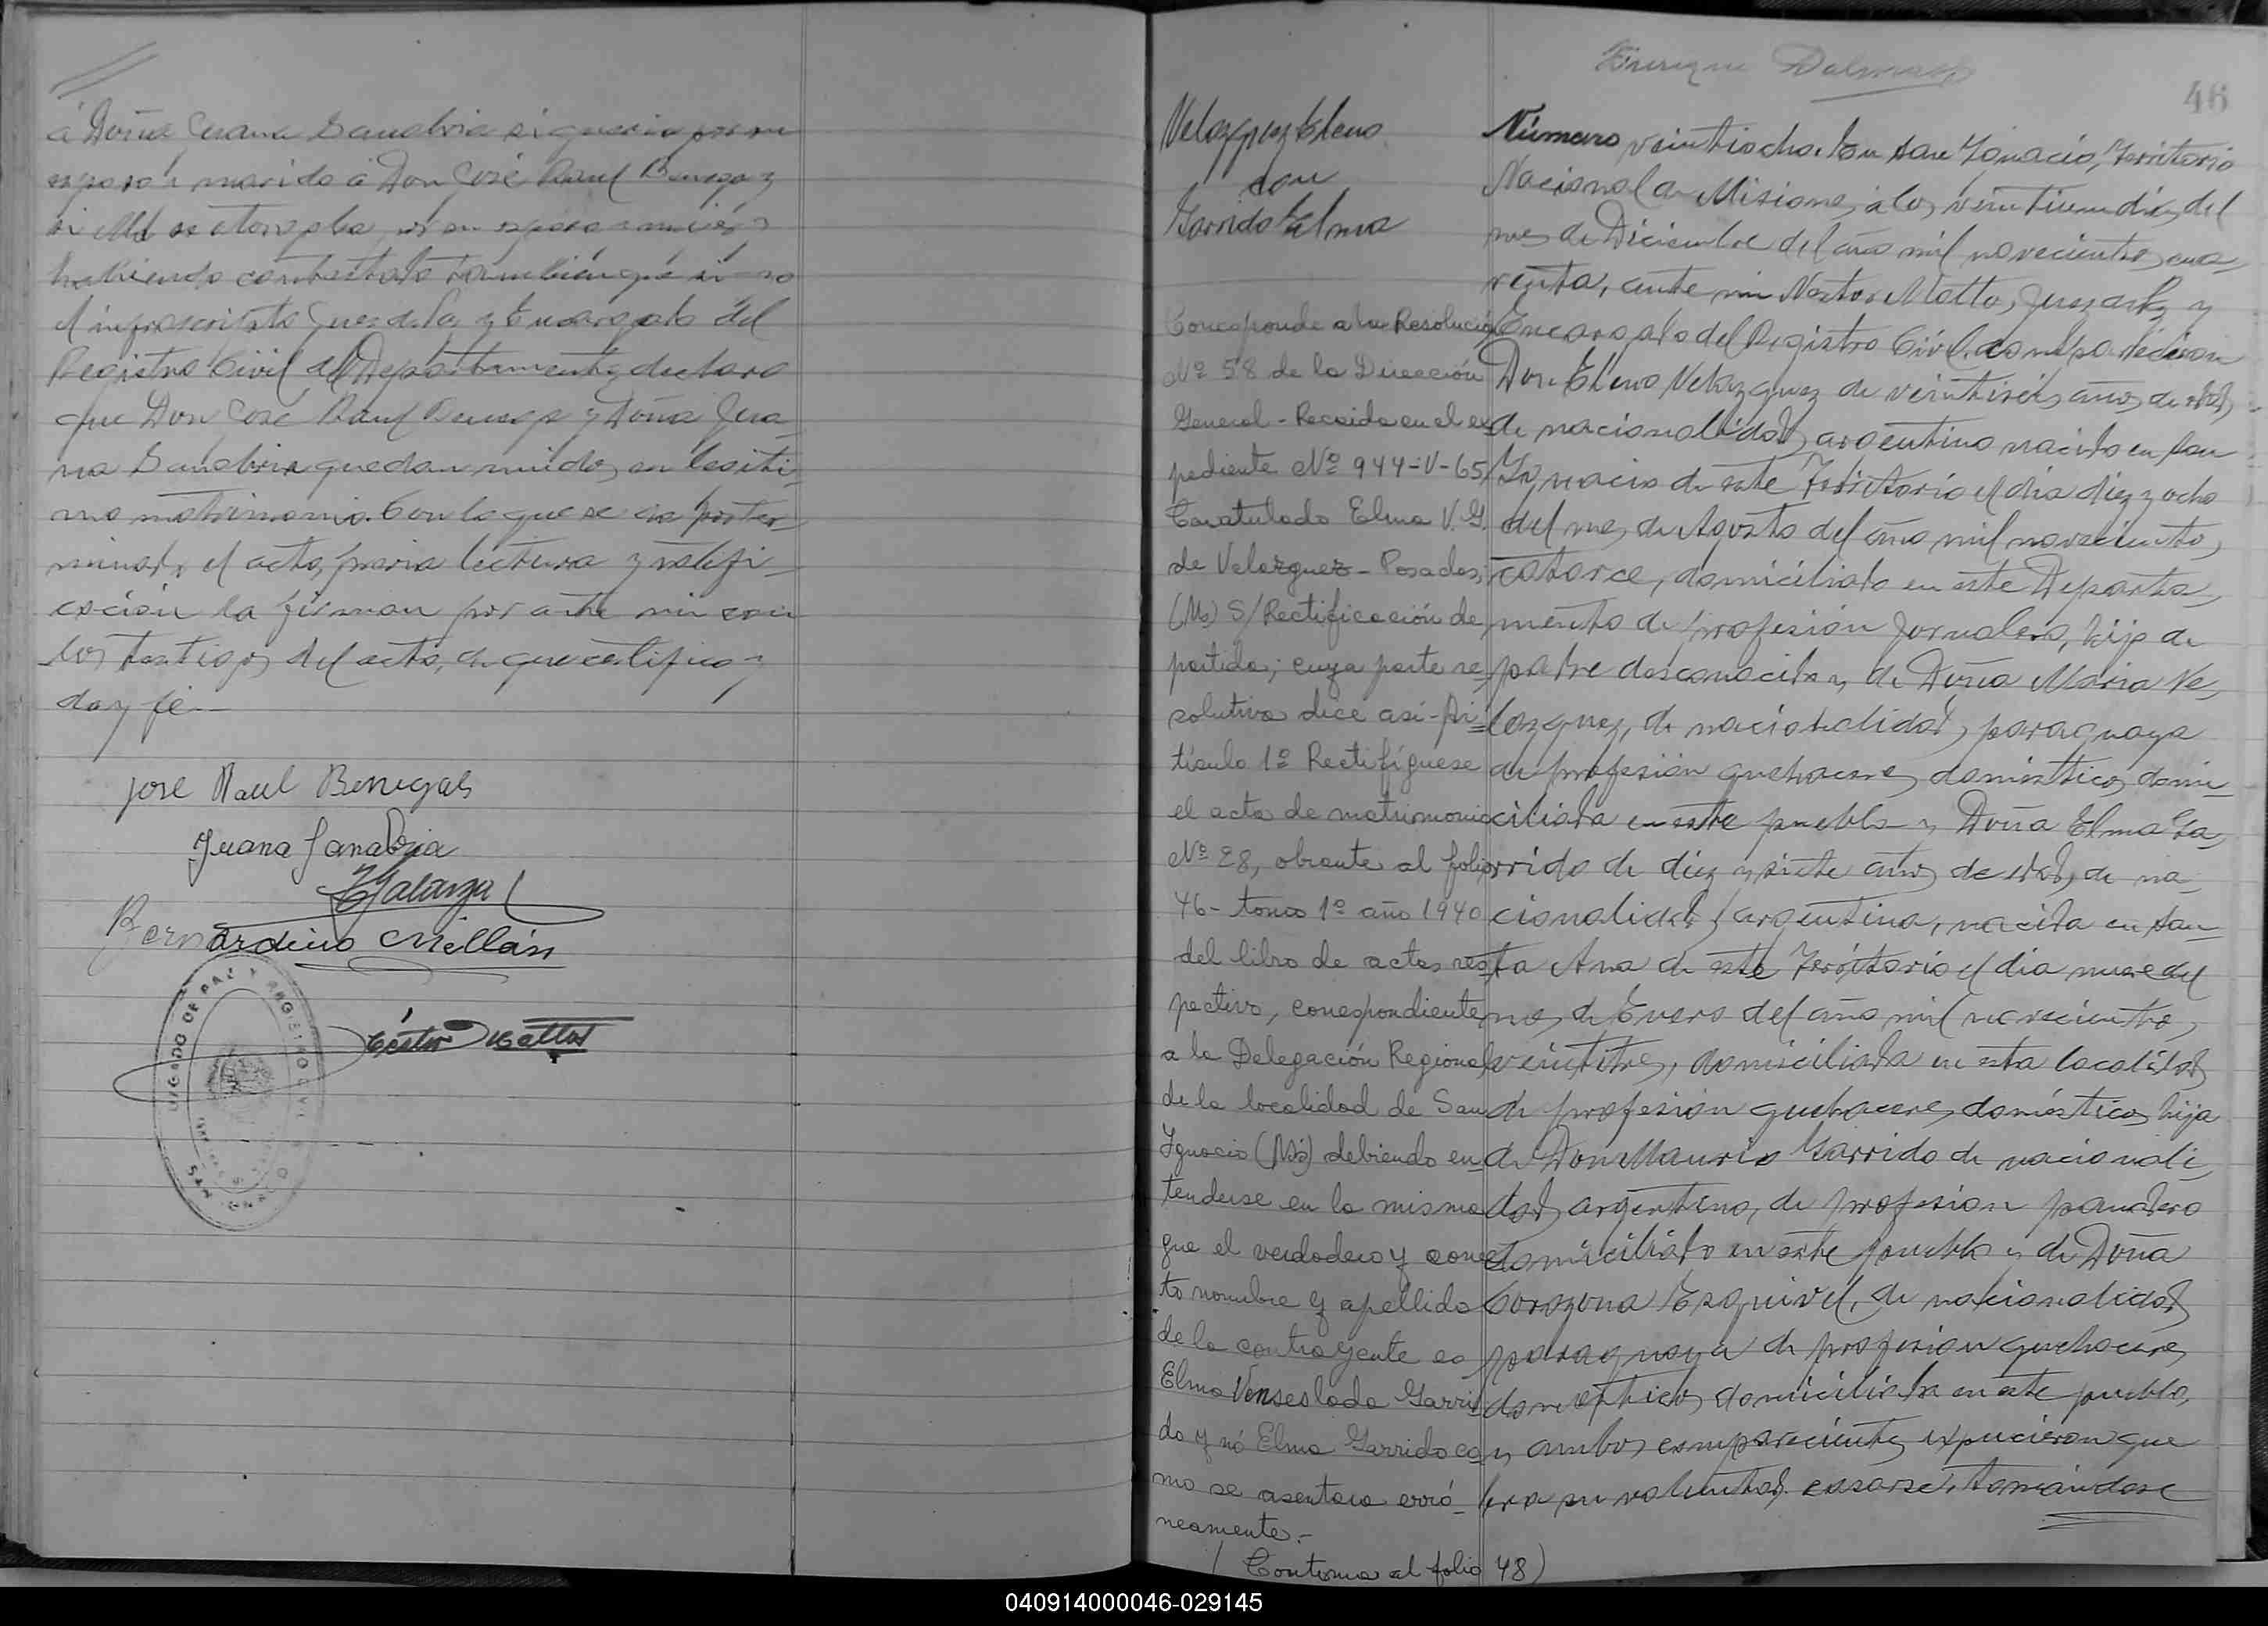 á Doña Juana Sanabria si queria por su
esposo y marido á Don José Raul Benega y
si ella se otorgaba por su esposa y mujer y
habiendo contestado también que si =
el infrascripto Juez de Paz y Encargado del
Registro Civil del Departamento, declaro
que Don José Raul Benega y Doña Jua-
na Sanabria quedan unidos en legiti-
mo matrimonio. Con lo que se dio por ter-
minado el acto, previa lectura y ratifi-
cación la firman por ante mi con
los testigos del acto, de que certifico y
doy fé.—
José Raul Benegas
Juana Sanabria
Galarza
Bernardino Millán
Néstor Motta
JUZGADO DE PAZ Y REGISTRO CIVIL
SAN IGNACIO
46
Velazquez Eleno
con
Garrido Elma
Corresponde a la Resolución
Nº 58 de la Dirección
General - Recaida en el ex
pediente Nº 944-V-65,
Caratulado Elma V. G.
de Velazquez - Posadas,
(Ms) S/Rectificación de
partida; cuya parte re-
solutiva dice asi - Ar=
tículo 1º Rectifíquese
el acta de matrimonio
Nº 28, obrante al folio
46 - tomo 1º año 1940
del libro de actas res-
pectivo, correspondiente
a la Delegación Regional
de la localidad de San
Ignacio (Ms) debiendo en-
tenderse en la misma
que el verdadero y correc
to nombre y apellido
de la contrayente es
Elma Venseslada Garri
do y nó Elma Garrido co-
mo se asentara erró-
neamente.-
( Continua al folio 48)
Enrique
Número veintiocho. En San Ignacio, Territorio
Nacional de Misiones, á los veintiun dias del
mes de Diciembre del año mil novecientos cua-
renta, ante mi Nestor Motta, Juez de Paz y
Encargado del Registro Civil, comparecieron
Don Eleno Velazquez de veintiseis años de edad,
de nacionalidad argentino nacido en San
Ignacio de este Territorio el dia diez y ocho
del mes de Agosto del año mil novecientos
catorce, domiciliado en este Departa-
mento de profesión jornalero, hijo de
padre desconocido y de Doña Maria Ve-
lazquez, de nacionalidad paraguaya
de profesión quehaceres domésticos domi-
ciliada en este pueblo y Doña Elma Ga-
rrido de diez y siete años de edad, de na-
cionalidad argentina, nacida en San-
ta Ana de este Territorio el dia nueve del
mes de Enero del año mil novecientos
veintitres, domiciliada en esta localidad
de profesión quehaceres domésticos hija
de Don Mauricio Garrido de nacionali-
dad argentino, de profesión panadero
domiciliado en este pueblo y de Doña
Corazona Esquivel, de nacionalidad
paraguaya de profesión quehaceres
domésticos domiciliada en este pueblo,
y ambos comparecientes expucieron que
era su voluntad casarse, tomándose
040914000046-029145